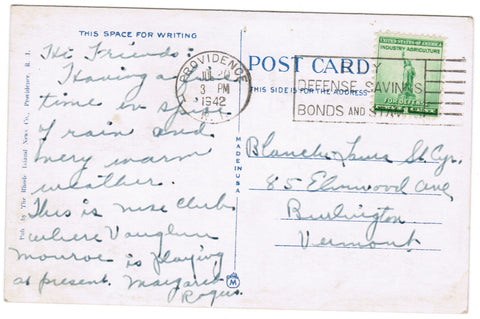 THIS SPACE FOR WRITING
Hi Friends:
Having a nice
time in spite
of rain and
very warm
weather.
This is nice club
where Vaughn
Monroe is playing
at present. Margaret
Rogers.
Pub. by The Rhode Island News Co., Providence, R. I.
MADE IN U.S.A.
POST CARD
THIS SIDE IS FOR THE ADDRESS
PROVIDENCE
3 PM
1942
DEFENSE SAVINGS
BONDS AND
UNITED STATES OF AMERICA
INDUSTRY AGRICULTURE
FOR DEFENSE
Blanche St. Cyr,
85 Elmwood Ave
Burlington
Vermont
M